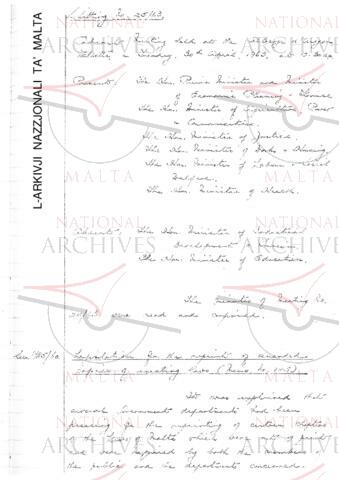 L-ARKIVJI NAZZJONALI TA' MALTA
NATIONAL
ARCHIVES
MALTA
Meeting No. 25/63
Cabinet Meeting held at the
Valletta, on Tuesday, 30th April, 1963, at
Present: The Hon. Prime Minister and Minister
of Economic Planning & Finance
The Hon. Minister of Agriculture, Power
& Communications
The Hon. Minister of Justice
The Hon. Minister of Works & Housing
The Hon. Minister of Labour & Social
Welfare
The Hon. Minister of Health.
Absent: The Hon. Minister of Industrial
Development
The Hon. Minister of Education.
The Minutes of Meeting No.
were read and confirmed.
for the reprint of amended
copies of existing laws. (Memo. No.
It was explained that
several Government departments had been
pressing for the reprinting of certain Chapters
of the Laws of Malta which were out of print
and were required by both the members of
the public and the departments concerned.